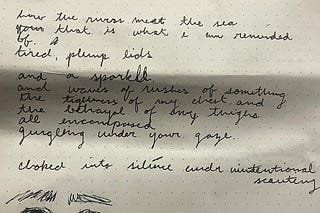 how the rivers meet the sea
your that is what i am reminded
of.
tired, plump lids
and a sparkle
and waves of rushes of something
the tightness of my chest, and
the betrayal of my thighs
all encomposed
gurgling under your gaze.
cloked into silence undr unintentional
scautiny